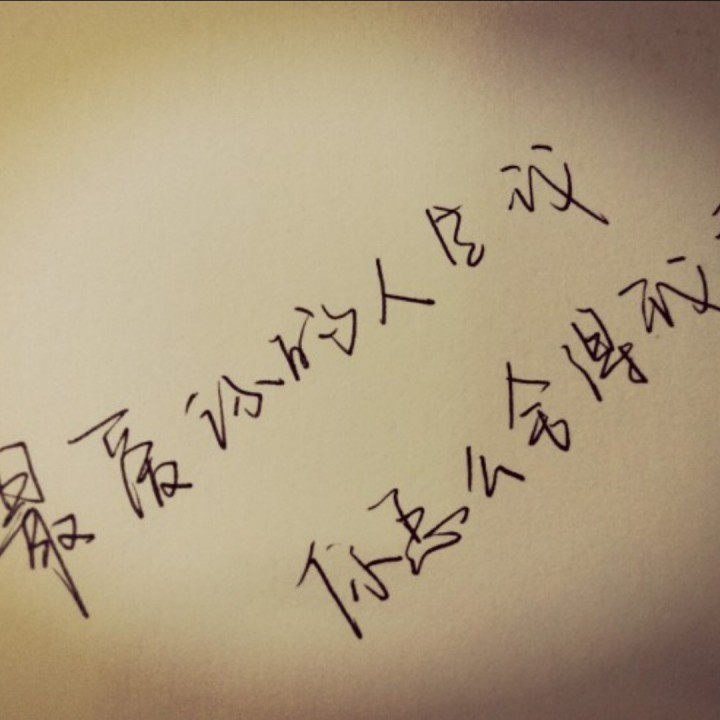 最爱你的人是我
你怎么舍得我